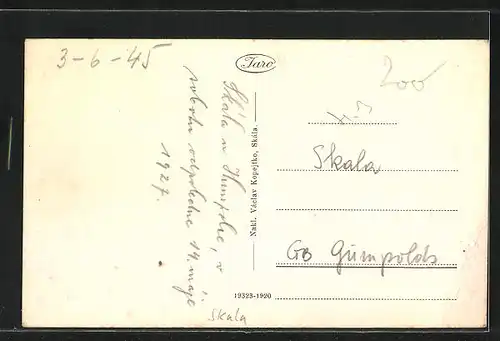 3-6-45
Taro
200
Skála u Humpolce, v
sobotu odpoledne 14. máje
1927.
Nakl. Václav Kopejtko, Skála.
Skala
GB Gumpolds
19323-1920
Skala